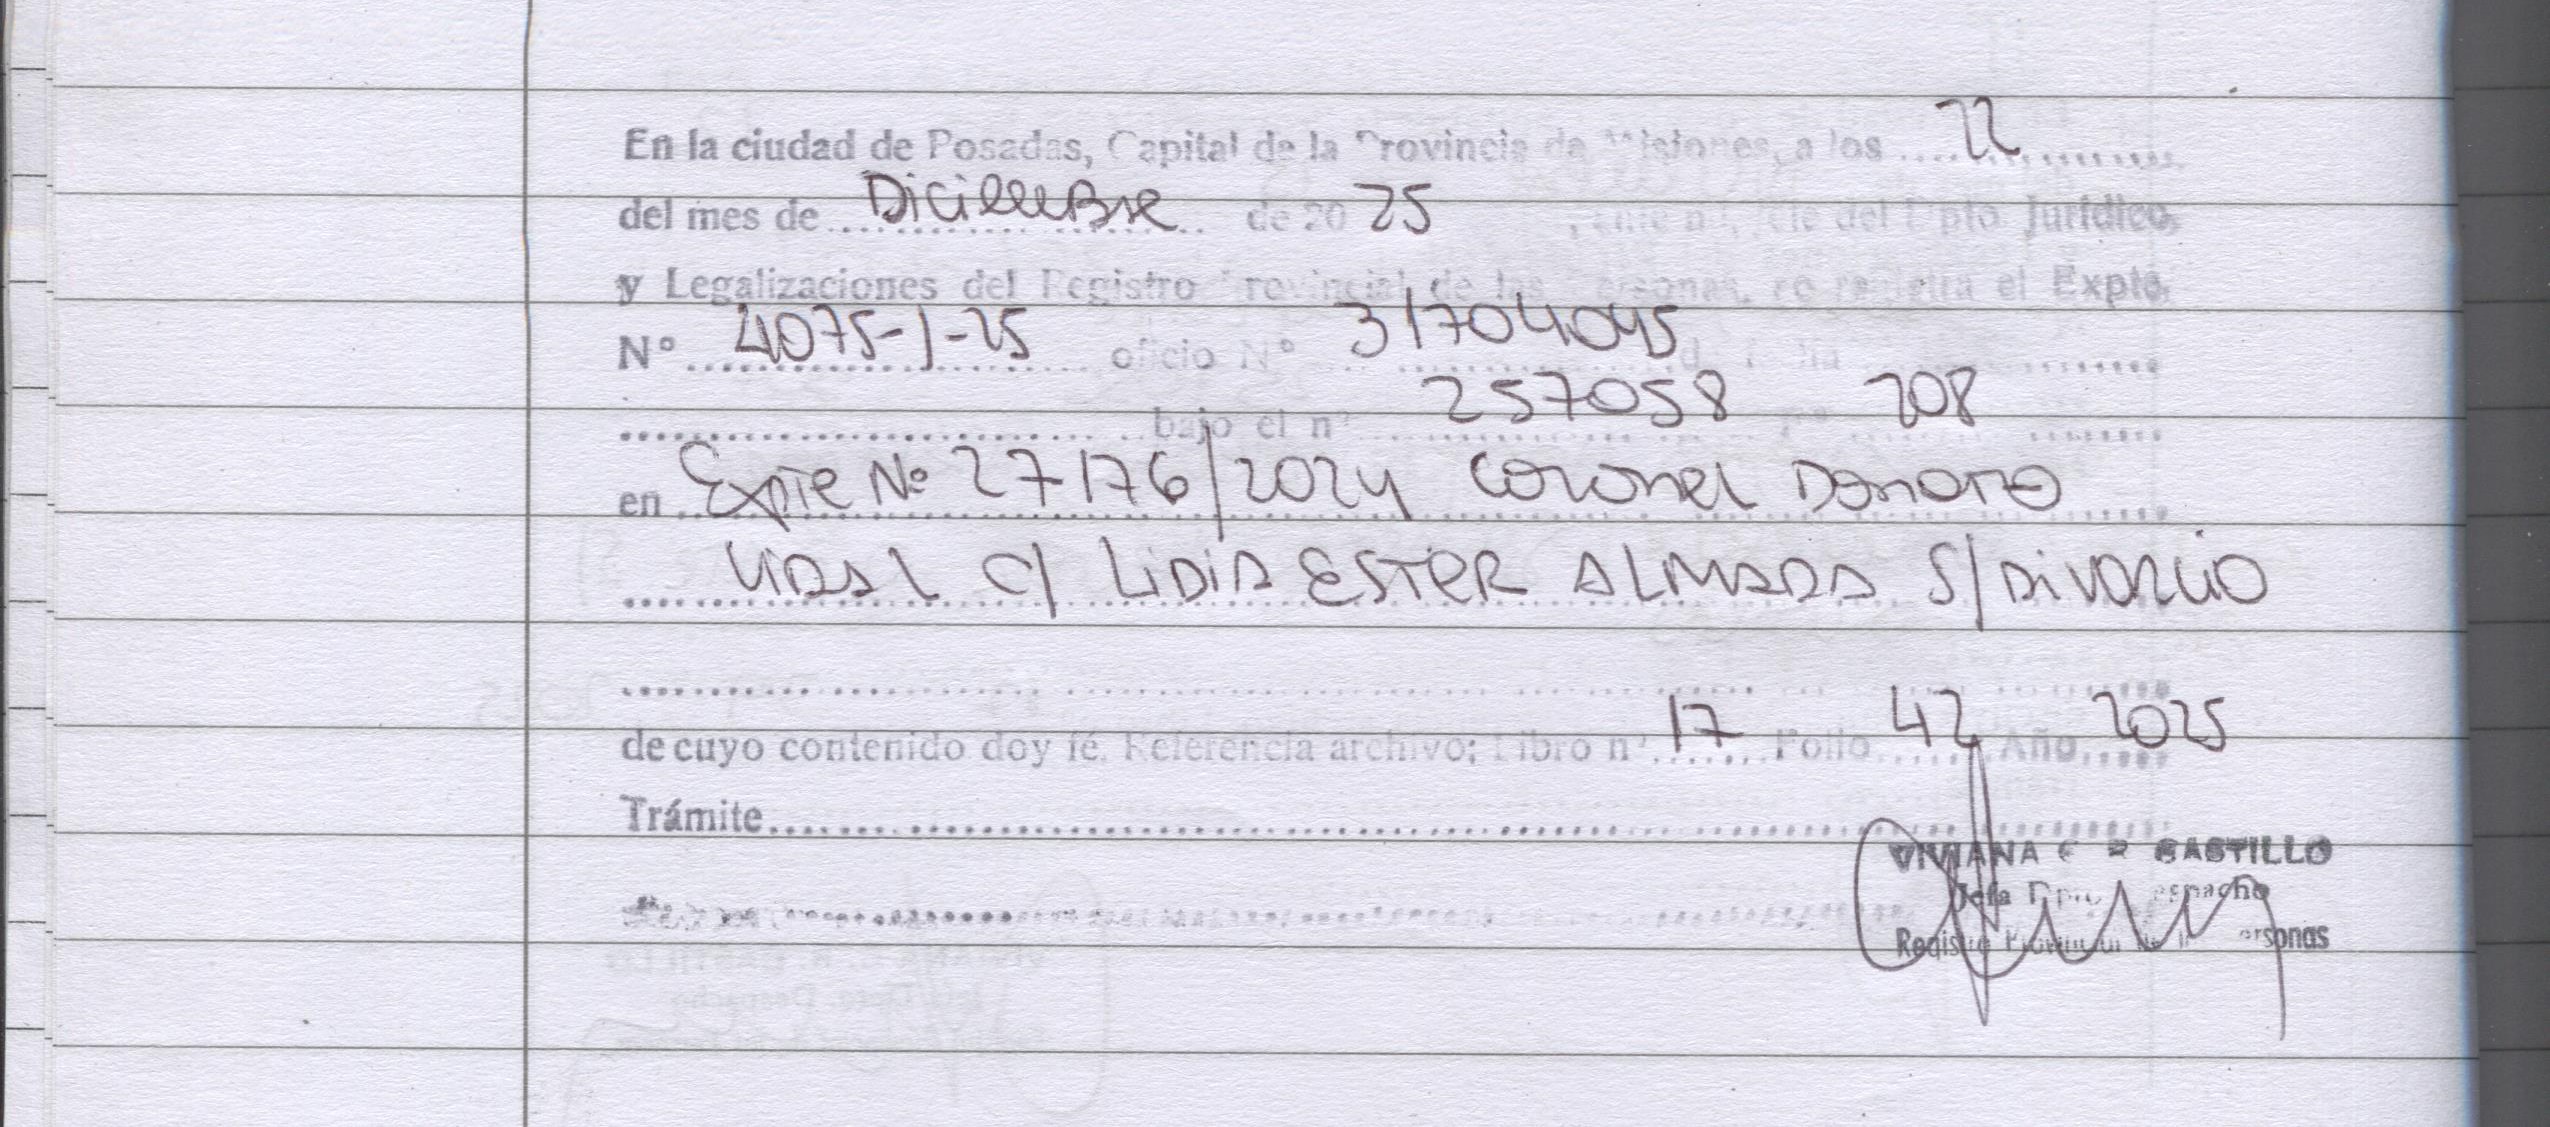 En la ciudad de Posadas, Capital de la Provincia de Misiones, a los 22
del mes de Diciembre de 2025, ante mi, Jefe del Dpto. Jurídico,
y Legalizaciones del Registro Provincial de las Personas, se registra el Expte.
N° 4075-J-25 oficio N° 31704045
bajo el n° 257058 208
en Expte Nº 27176/2024 Coronel Donato
Vidal C/ Lidia Ester Almada S/ Divorcio
de cuyo contenido doy fé. Referencia archivo; Libro n° 17 Folio 42 Año 2025
Trámite
VIVIANA CASTILLO
Jefa Dpto. Despacho
Registro Provincial de las Personas